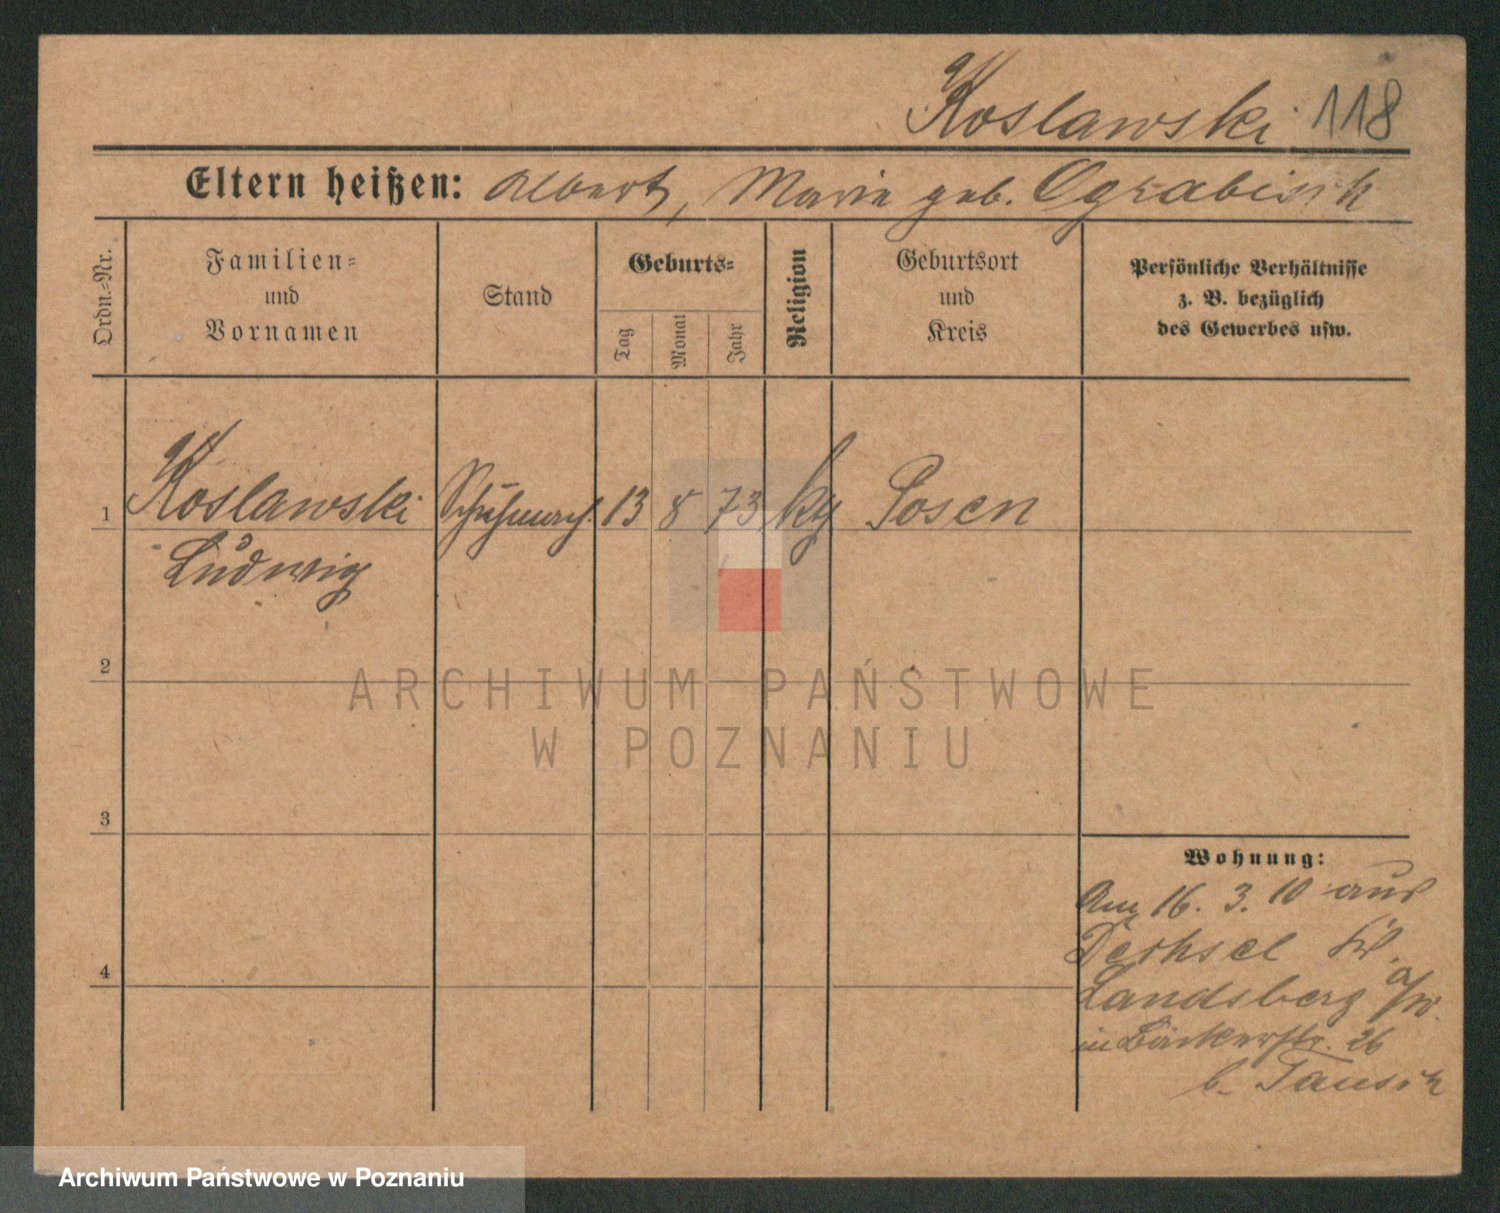 Koslawski 118
Eltern heißen: Albert, Marie geb.
Ordn.-Nr.
Familien-
und
Vornamen
Stand
Geburts-
Tag
Monat
Jahr
Religion
Geburtsort
und
Kreis
Persönliche Verhältnisse
z. B. bezüglich
des Gewerbes usw.
1 Koslawski Schuhmach. 13 8 73 Posen
Ludwig
2
3
4
ARCHIWUM PAŃSTWOWE
W POZNANIU
Wohnung:
Am 16. 3. 10 aus
Dechsel Kr.
Landsberg a/W.
in Bäckerstr. 26
b.
Archiwum Państwowe w Poznaniu